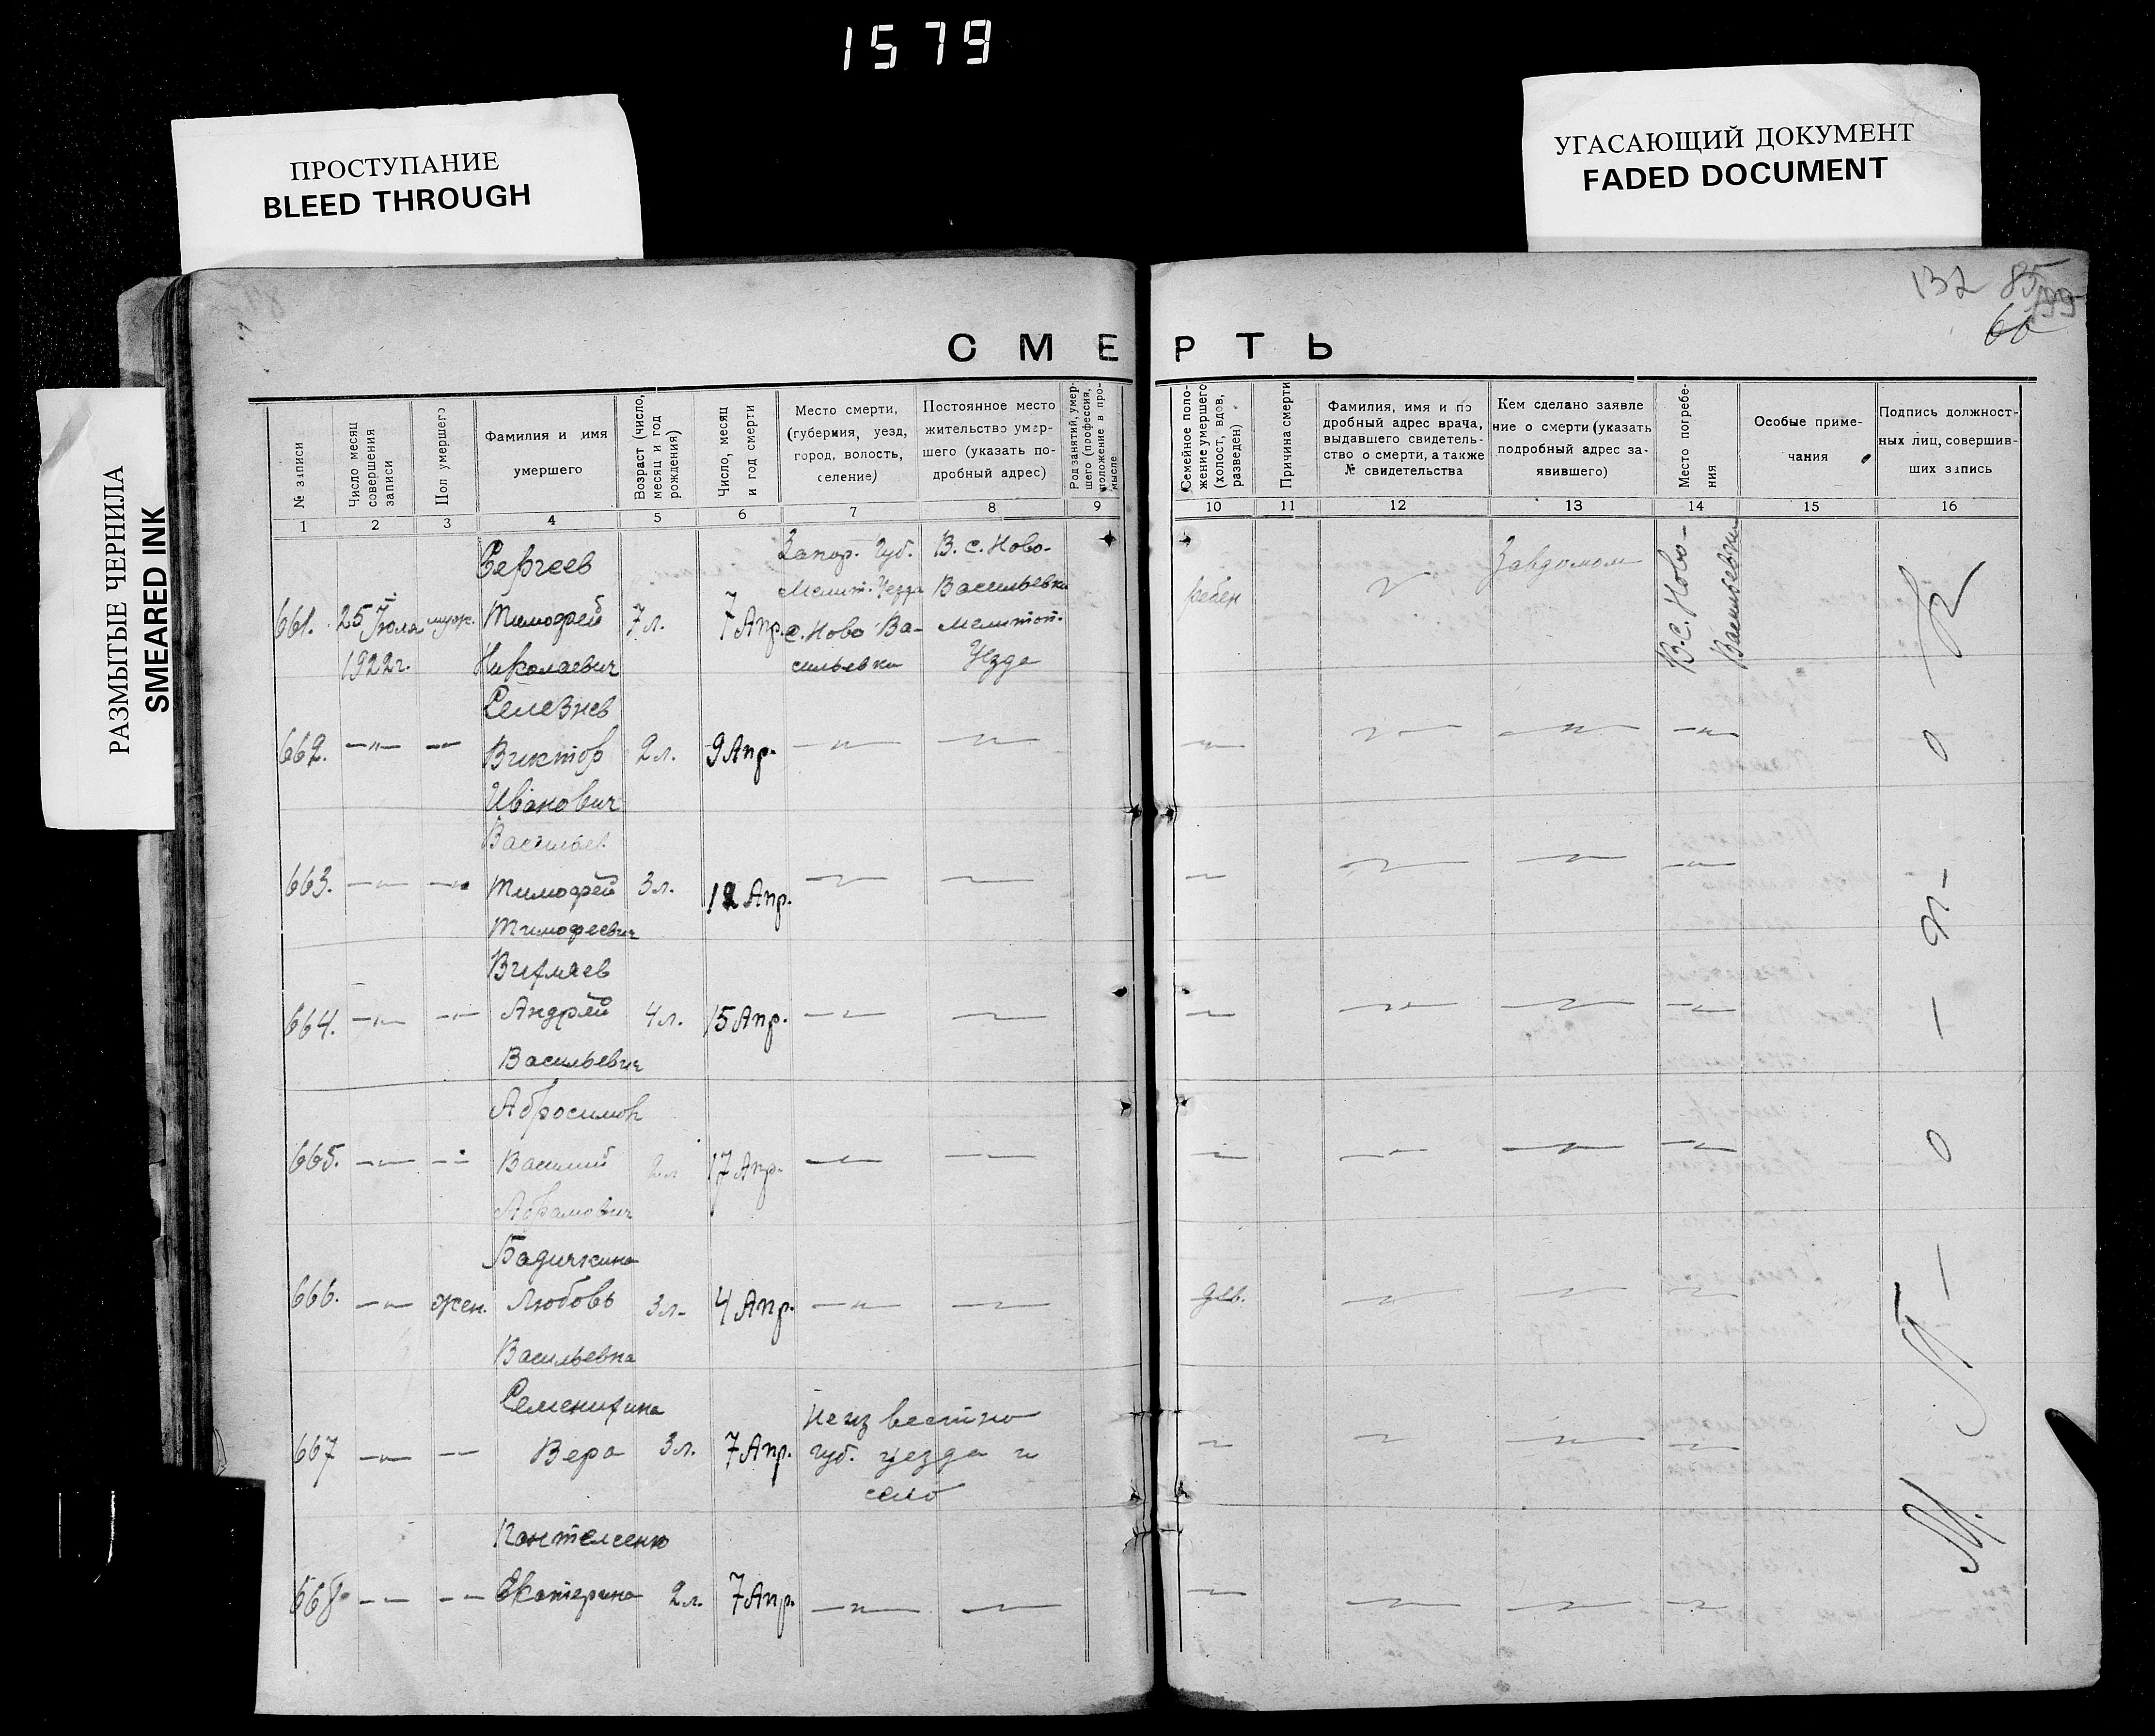 1579
ПРОСТУПАНИЕ
BLEED THROUGH
УГАСАЮЩИЙ ДОКУМЕНТ
FADED DOCUMENT
РАЗМЫТЫЕ ЧЕРНИЛА
SMEARED INK
132 85
66
СМЕРТЬ
№ записи
Число месяц
совершения
записи
Пол умершего
Фамилия и имя
умершего
Возраст (число,
месяц и год
рождения)
Число, месяц
и год смерти
Место смерти,
(губермия, уезд,
город, волость,
селение)
Постоянное место
жительство умер-
шего (указать по-
дробный адрес)
Род занятий, умер-
шего (профессия,
положение в про-
мысле
Семейное поло-
жение умершего
(холост, вдов,
разведен)
Причина смерти
Фамилия, имя и по
дробный адрес врача,
выдавшего свидетель-
ство о смерти, а также
№ свидетельства
Кем сделано заявле
ние о смерти (указать
подробный адрес за-
явившего)
Место погребе-
ния
Особые приме-
чания
Подпись должност-
ных лиц, совершив-
ших запись
1 2 3 4 5 6 7 8 9 10 11 12 13 14 15 16
661.
25 Июля
1922г.
муж.
Сергеев
Тимофей
Николаевич
7 л.
7 Апр.
Запор. Губ.
Мелит. Уезда
с. Ново Ва-
сильевка
В. С. Ново-
Васильевка
Мелитоп.
Уезда
ребен
Завдомом
В. С. Ново-
Васильевка
662. —"— —"—
Селезнев
Виктор
Иванович
2 л. 9 Апр. —"— —"— —"— —"— —"— —"—
663. —"— —"—
Васильев
Тимофей
Тимофеевич
3 л. 12 Апр. —"— —"— —"— —"— —"— —"—
664. —"— —"—
Андрей
Васильевич
4 л. 15 Апр. —"— —"— —"— —"— —"— —"—
665. —"— —"—
Абросимов
Василий
Абрамович
2 л 17 Апр. —"— —"— —"— —"— —"— —"—
666. —"— жен.
Бадичкина
Любовь
Васильевна
3 л. 4 Апр. —"— —"— дев. —"— —"— —"—
667 —"— —"—
Вера
3 л. 7 Апр.
Неизвестно
губ. уезда и
село
—"— —"— —"— —"—
668 —"— —"—
Екатерина
2 л. 7 Апр. —"— —"— —"— —"— —"— —"—